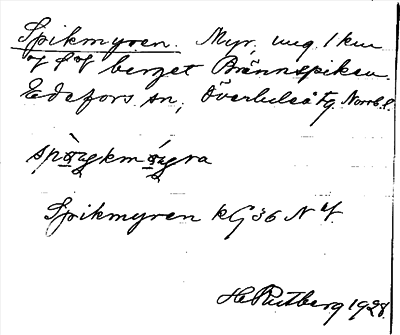 Spikmyren. Myr, ung. 1 km
berget Brännspiken.
Edefors sn, Överluleå tg. Norrb. l.
Spikmyren kG36 NV.
H. Rutberg 1928.